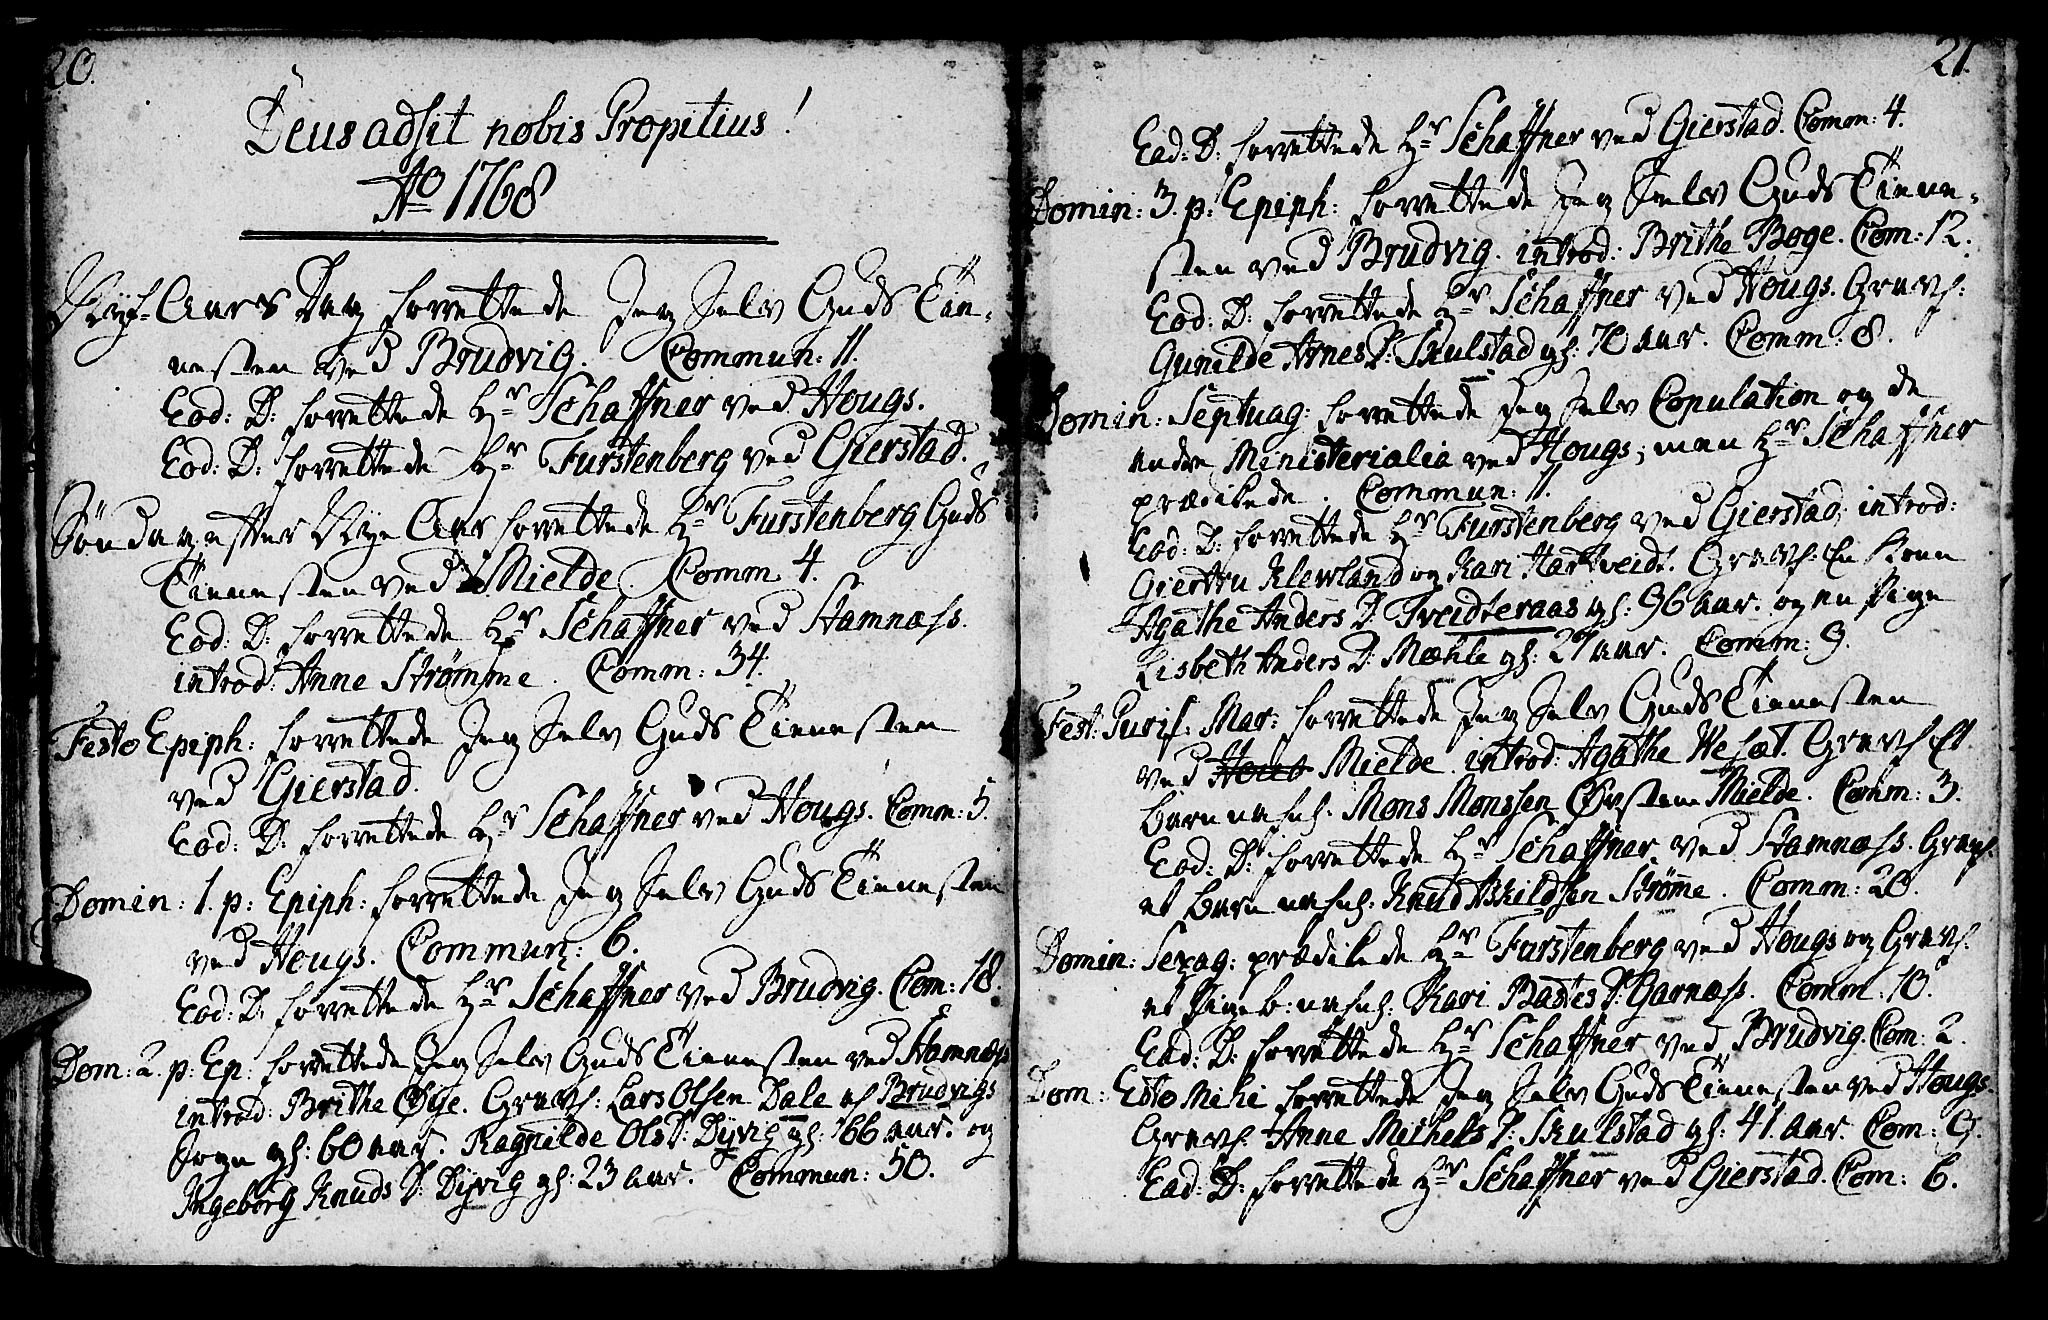 20.
Deus adsit nobis Propitius!
Ao 1768
Nyt-Aars Dag forrettede Jeg Selv Guds Tien-
nesten ved Brudvig. Commun: 11.
Eod: D: forrettede Hr Schaffner ved Hougs.
Eod: D: forrettede Hr Furstenberg ved Gierstad.
Søndag efter Nye Aar forrettede Hr Furstenberg Guds
Tiennesten ved Mielde. Comm 4.
Eod: D: forrettede Hr Schaffner ved Stamnæss.
introd: Anne Strømme. Comm: 34.
Festo Epiph: forrettede Jeg Selv Guds Tiennesten
ved Gierstad.
Eod: D: forrettede Hr Schaffner ved Hougs. Comm: 5.
Domin: 1. p: Epiph: forrettede Jeg Selv Guds Tiennesten
ved Hougs. Commun: 6.
Eod: D: forrettede Hr Schaffner ved Brudvig. Com: 18.
Dom: 2. p: Ep: forrettede Jeg Selv Guds Tiennesten ved Stamnæss
introd: Brithe Øye. Gravf: Lars Olsen Dale af Brudvigs
Sogn gl: 60 aar. Ragnilde Ols D: Dyvig gl: 66 aar. og
Ingeborg Knuds D: Dyvig gl: 23 aar. Commun: 50.
21.
Ead: D: forrettede Hr Schaffner ved Gierstad. Comm: 4.
Domin: 3. p: Epiph: forrettede Jeg Selv Guds Tienne-
sten ved Brudvig. introd: Brithe Boge. Com: 12.
Eod: D: forrettede Hr Schaffner ved Hougs. Gravf:
Gunilde Arnes D: Skulstad gl: 70 aar. Comm: 8.
Domin: Septuag: forrettede Jeg Selv Copulation og de
andre Ministerialia ved Hougs; men Hr Schaffner
prædikede. Commun: 11.
Eod: D: forrettede Hr Furstenberg ved Gierstad; introd:
Giertru Klewland og Kari Hartveidt. Gravf: En Kone
Agathe Anders D: Treidteraas gl: 96 aar. og en Pige
Lisbeth Anders D: Mæhle gl: 27 aar. Comm: 9.
Fest: Purif: Mar: forrettede Jeg Selv Guds Tiennesten
ved Mielde. introd: Agathe Wesæt. Gravf: Et
barn nafnl: Mons Monssen Øfsteme Mielde. Comm: 3.
Eod: D: forrettede Hr Schaffner ved Stamnæss. Gravf:
et barn nafnl: Knud Askildsen Strømme. Comm: 20.
Domin: Sexag: prædikede Hr Furstenberg ved Hougs og Gravf:
et Pige b: nafnl: Kari Baties D: Garnæss. Comm. 10.
Ead: D: forrettede Hr Schaffner ved Brudvig. Com: 2.
Dom: Esto Mihi forrettede Jeg Selv Guds Tiennesten ved Hougs.
Gravf: Anne Michels D: Skulstad gl: 41. aar. Com: 9.
Ead: D: forrettede Hr Schaffner ved Gierstad. Com: 6.